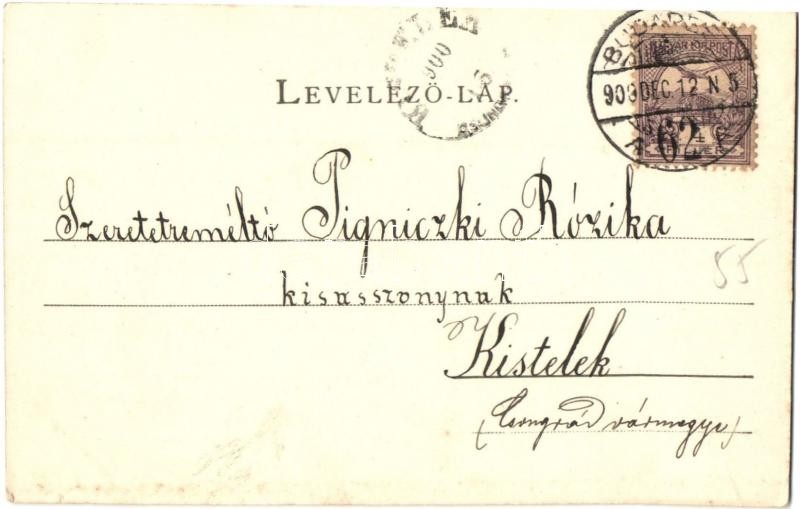 LEVELEZŐ-LAP.
BUDAPEST
909 DEC. 12 N 5
62
MAGYAR KIR. POSTA
Szeretetreméltó Pigniczki Rózika
kisasszonynak
55
Kistelek
(Csongrád vármegye)